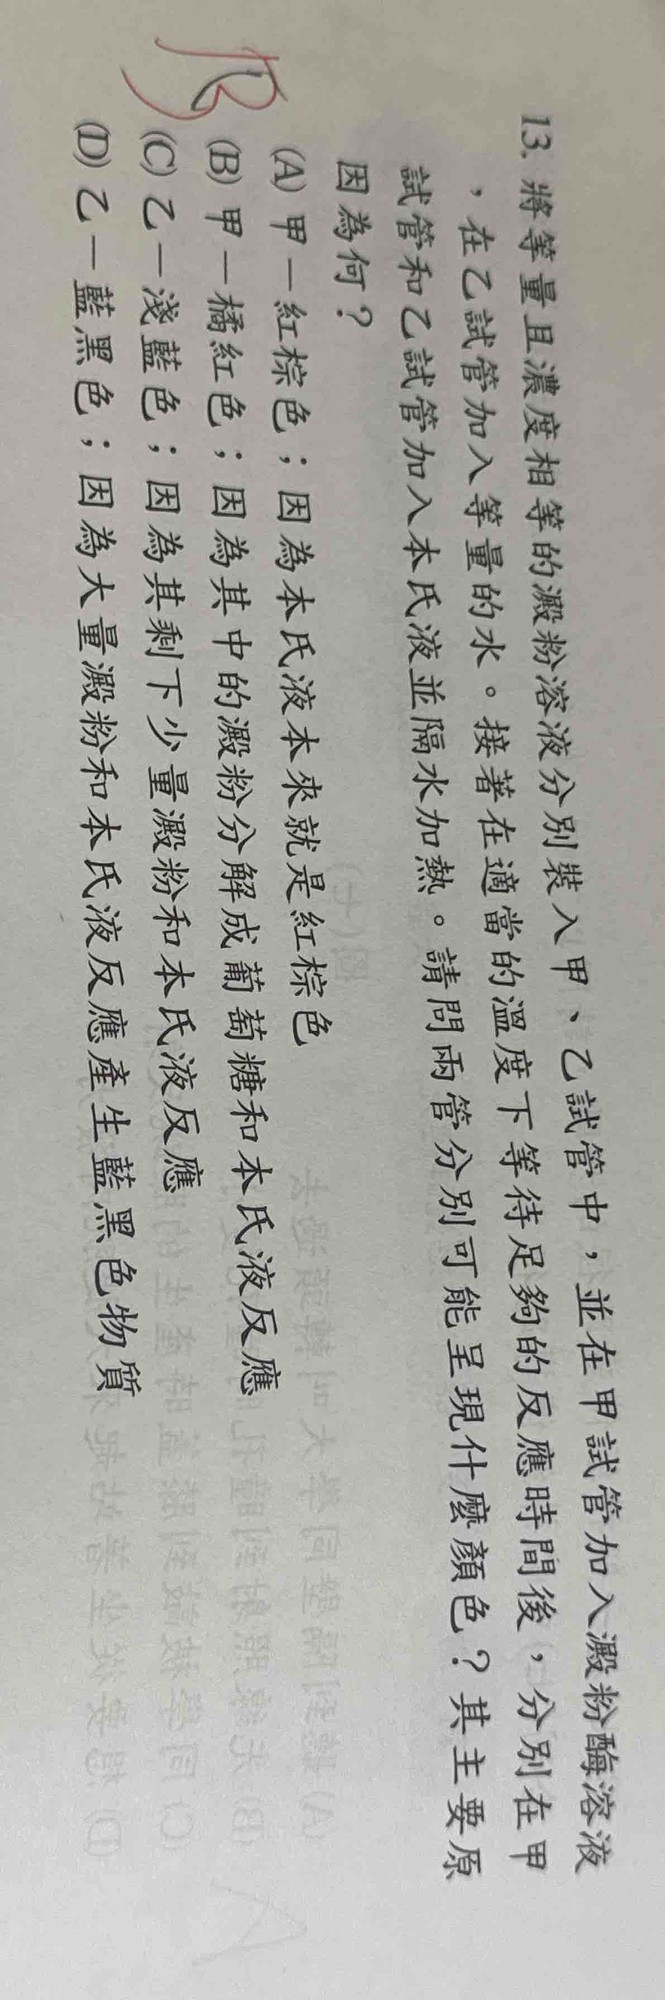 13. 將等量且濃度相等的澱粉溶液分別裝入甲、乙試管中，並在甲試管加入澱粉酶溶液
，在乙試管加入等量的水。接著在適當的溫度下等待足夠的反應時間後，分別在甲
試管和乙試管加入本氏液並隔水加熱。請問兩管分別可能呈現什麼顏色？其主要原
因為何？
(A) 甲－紅棕色；因為本氏液本來就是紅棕色
(B) 甲－橘紅色；因為其中的澱粉分解成葡萄糖和本氏液反應
(C) 乙－淺藍色；因為其剩下少量澱粉和本氏液反應
(D) 乙－藍黑色；因為大量澱粉和本氏液反應產生藍黑色物質
B